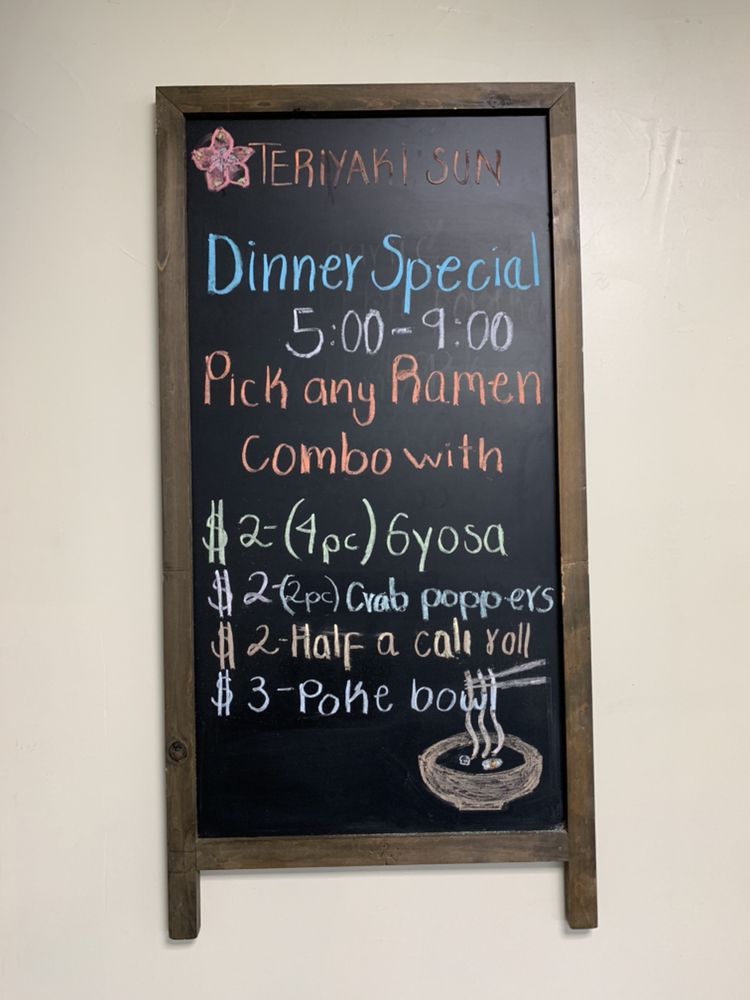 TERIYAKI SUN
Dinner Special
5:00-9:00
Pick any Ramen
Combo with
$2-(4pc) Gyosa
$2-(2pc) Crab poppers
$2-Half a cali roll
$3-Poke bowl